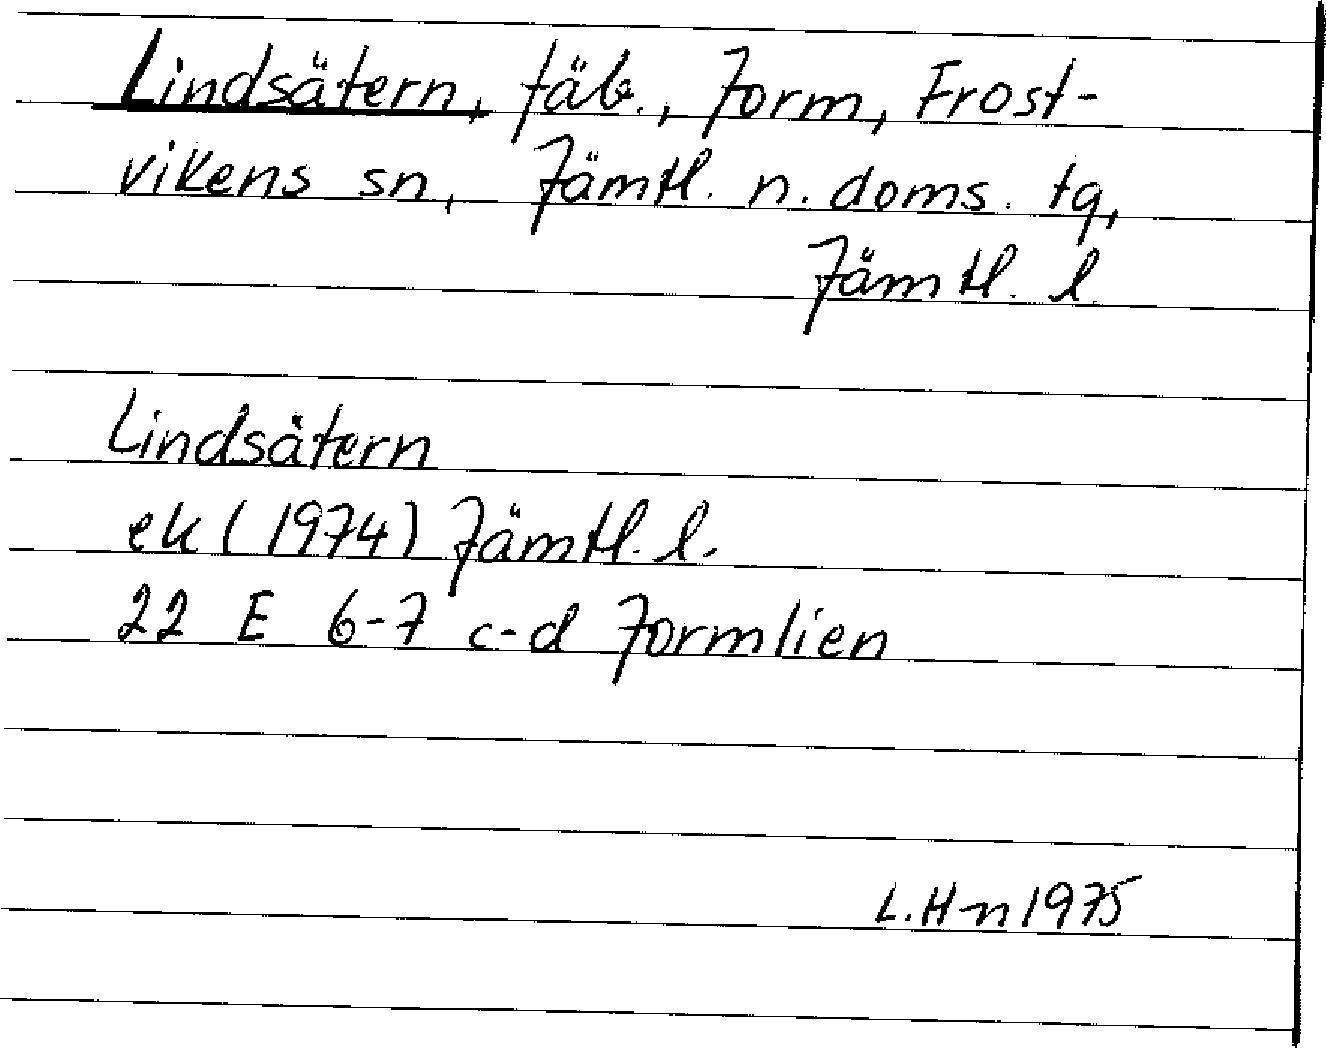 Lindsätern, fäb., Jorm, Frost-
vikens sn, Jämtl. n. doms. tg,
Jämtl. l.
Lindsätern
ek (1974) Jämtl. l.
22 E 6-7 c-d Jormlien
L.H-n 1975